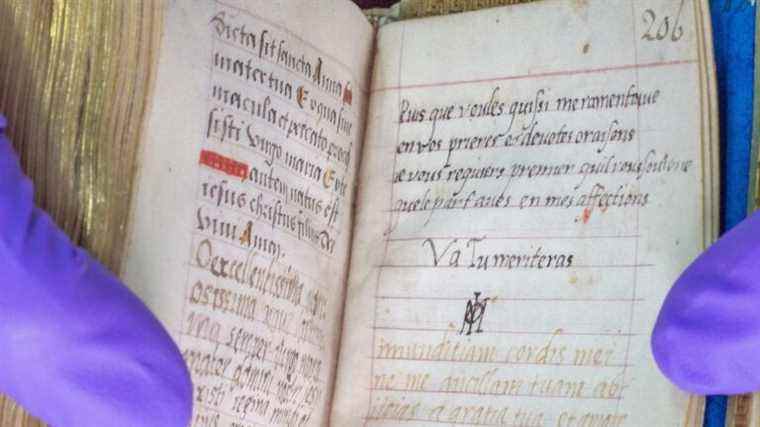 Dicta sit sancta Anna
mater tua Ex qua sine
macula et peccato proces
sisti Virgo maria Ex te
autem natus est
iesus christus filius Dei
vivi Amen.
O excellentissima
osissima
semper
regina
206
Puis que voules quissi me ramentoive
en vos prieres & devotes oraisons
Je vous requiers premier quil vous souvienne
quele part aves en mes affections
Va Tu meriteras
immunditiam cordis mei
ne me ancillam tuam abi
icias a gratia tua